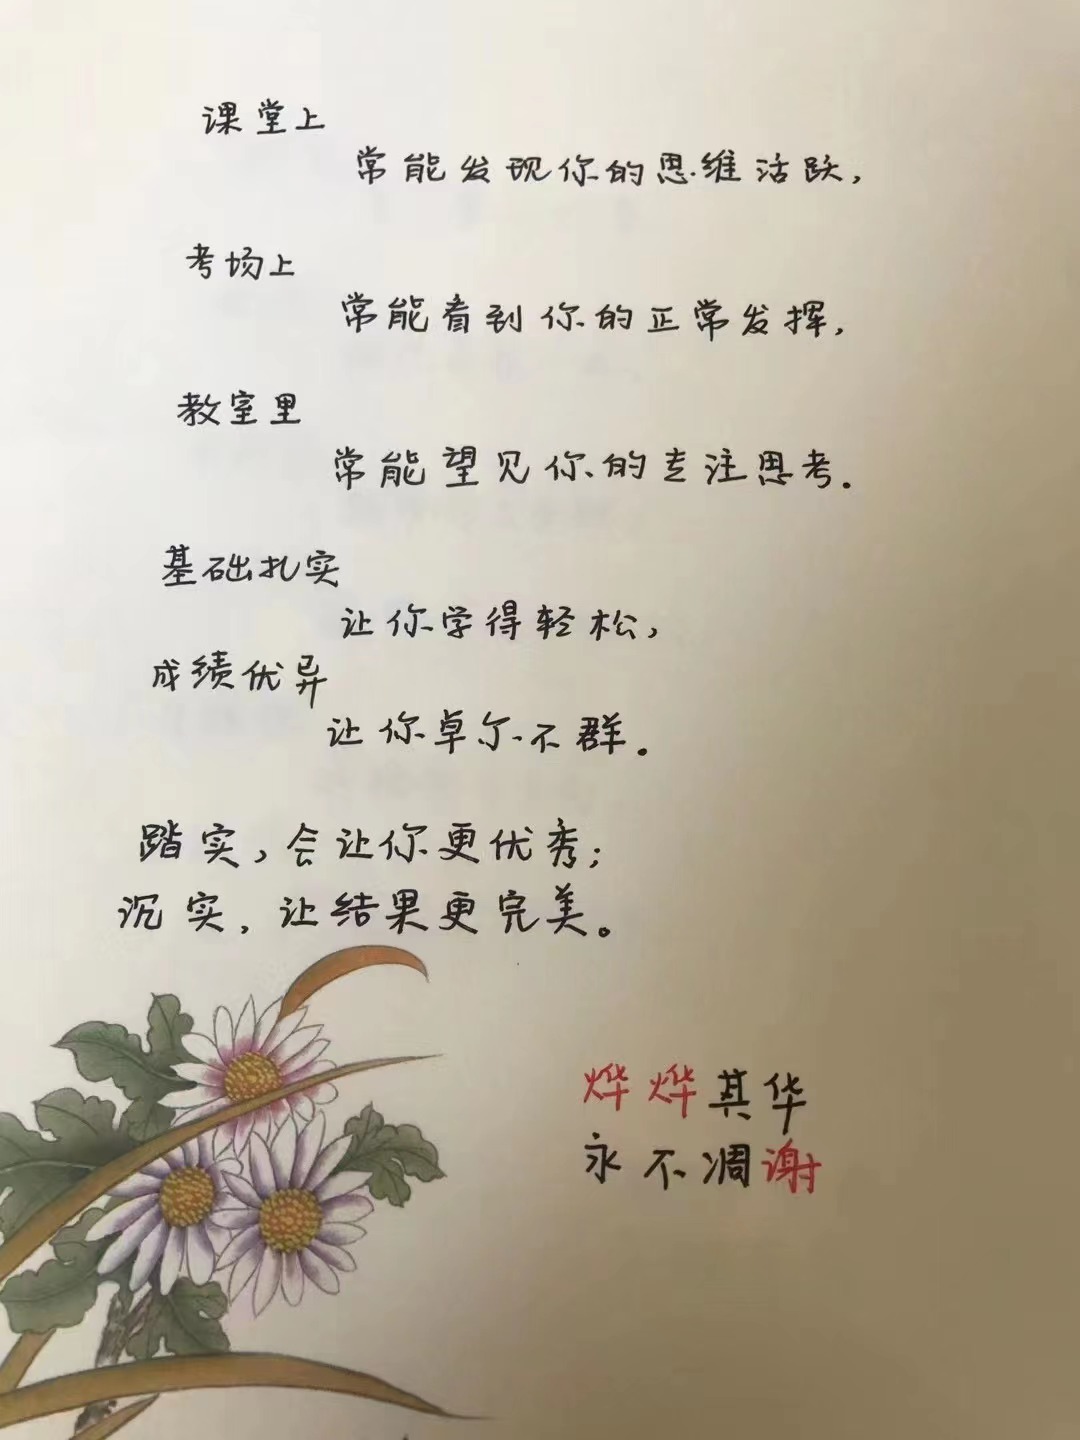 课堂上
常能发现你的思维活跃,
考场上
常能看到你的正常发挥,
教室里
常能望见你的专注思考.
基础扎实
让你学得轻松,
成绩优异
让你卓尔不群.
踏实,会让你更优秀;
沉实,让结果更完美。
烨烨其华
永不凋谢